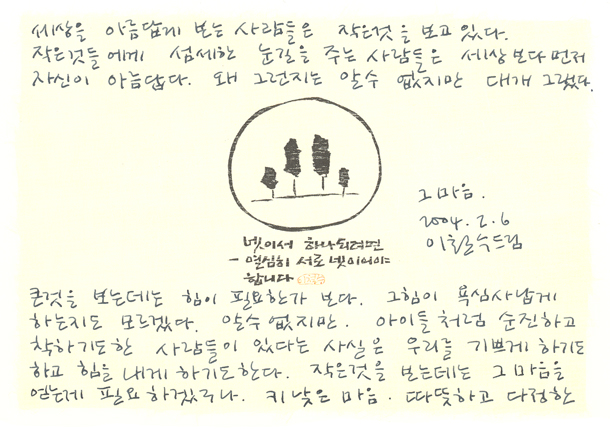 세상을 아름답게 보는 사람들은 작은것을 보고 있다.
작은것들에게 섬세한 눈길을 주는 사람들은 세상보다 먼저
자신이 아름답다. 왜 그런지는 알수 없지만 대개 그렇다.
넷이서 하나되려면
- 열심히 서로 넷이어야
합니다
그 마음.
2004. 2. 6
이철수드림
큰것을 보는데는 힘이 필요한가 보다. 그힘이 욕심사납게
하는지도 모르겠다. 알수 없지만. 아이들처럼 순진하고
착하기도한 사람들이 있다는 사실은 우리를 기쁘게 하기도
하고 힘을 내게 하기도한다. 작은것을 보는데는 그 마음을
여는게 필요하겠구나. 키낮은 마음. 따뜻하고 다정한